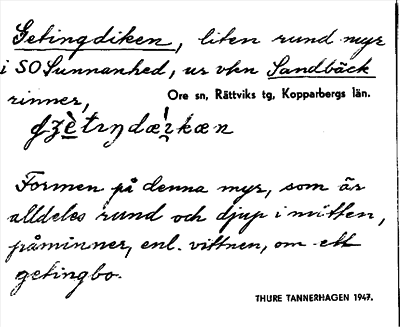 Getingdiken, liten rund myr
i SO Sunnanhed, ur vkn Sandbäck
rinner,
Ore sn, Rättviks tg, Kopparbergs län.
Formen på denna myr, som är
alldeles rund och djup i mitten,
påminner, enl. vittnen, om ett
getingbo.
THURE TANNERHAGEN 1947.